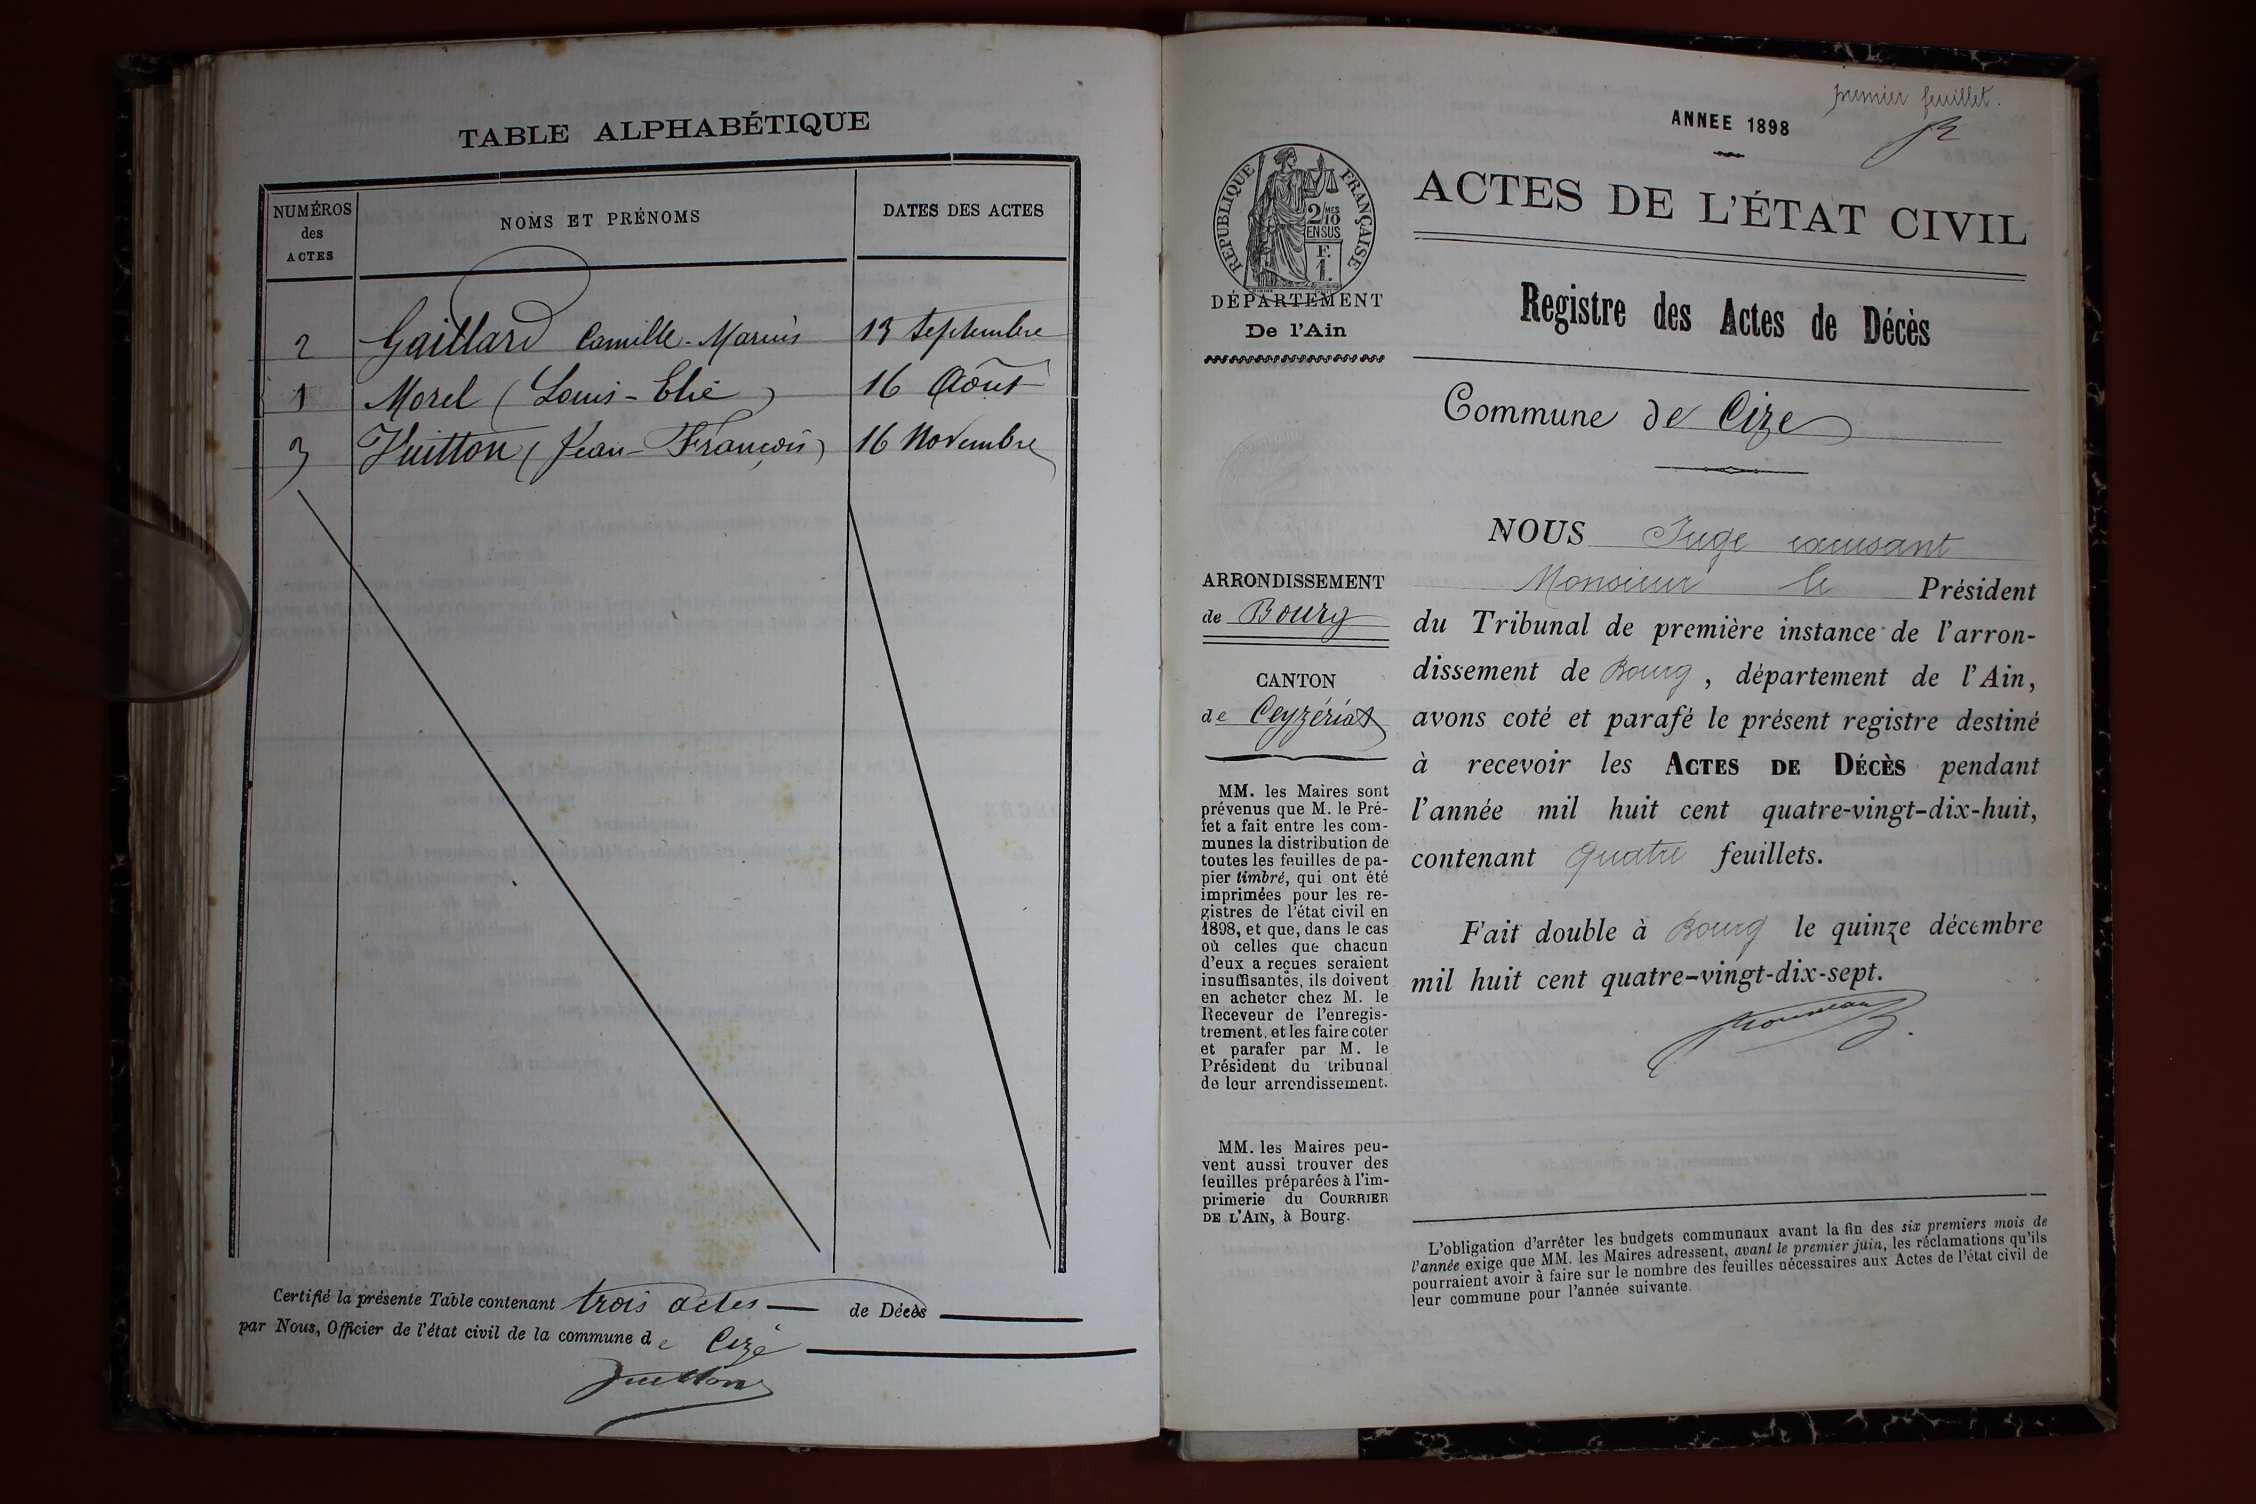 TABLE ALPHABÉTIQUE
NUMÉROS des ACTES
NOMS ET PRÉNOMS
DATES DES ACTES
2 Gaillard Camille-Marius 13 Septembre
1 Morel (Louis-Elie) 16 Août
3 Vuitton (Jean-François) 16 Novembre
Certifié la présente Table contenant trois actes de Décès
par Nous, Officier de l'état civil de la commune de Cize
Vuitton
premier feuillet.
ANNEE 1898
RÉPUBLIQUE FRANÇAISE
2/10 MES
EN SUS
F.
1.
DÉPARTEMENT
De l'Ain
ACTES DE L'ÉTAT CIVIL
Registre des Actes de Décès
Commune de Cize
ARRONDISSEMENT
de Bourg
CANTON
de Ceyzériat
MM. les Maires sont
prévenus que M. le Pré-
fet a fait entre les com-
munes la distribution de
toutes les feuilles de pa-
pier timbré, qui ont été
imprimées pour les re-
gistres de l'état civil en
1898, et que, dans le cas
où celles que chacun
d'eux a reçues seraient
insuffisantes, ils doivent
en acheter chez M. le
Receveur de l'enregis-
trement, et les faire coter
et parafer par M. le
Président du tribunal
de leur arrondissement.
MM. les Maires peu-
vent aussi trouver des
feuilles préparées à l'im-
primerie du COURRIER
DE L'AIN, à Bourg.
NOUS Juge excusant
Monsieur le Président
du Tribunal de première instance de l'arron-
dissement de Bourg, département de l'Ain,
avons coté et parafé le présent registre destiné
à recevoir les ACTES DE DÉCÈS pendant
l'année mil huit cent quatre-vingt-dix-huit,
contenant quatre feuillets.
Fait double à Bourg le quinze décembre
mil huit cent quatre-vingt-dix-sept.
L'obligation d'arrêter les budgets communaux avant la fin des six premiers mois de
l'année exige que MM. les Maires adressent, avant le premier juin, les réclamations qu'ils
pourraient avoir à faire sur le nombre des feuilles nécessaires aux Actes de l'état civil de
leur commune pour l'année suivante.